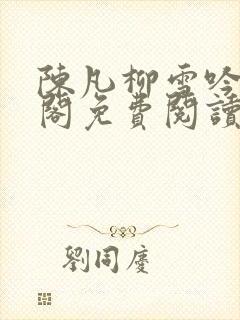 陳凡柳雪吟
閣免費閱讀
劉同慶